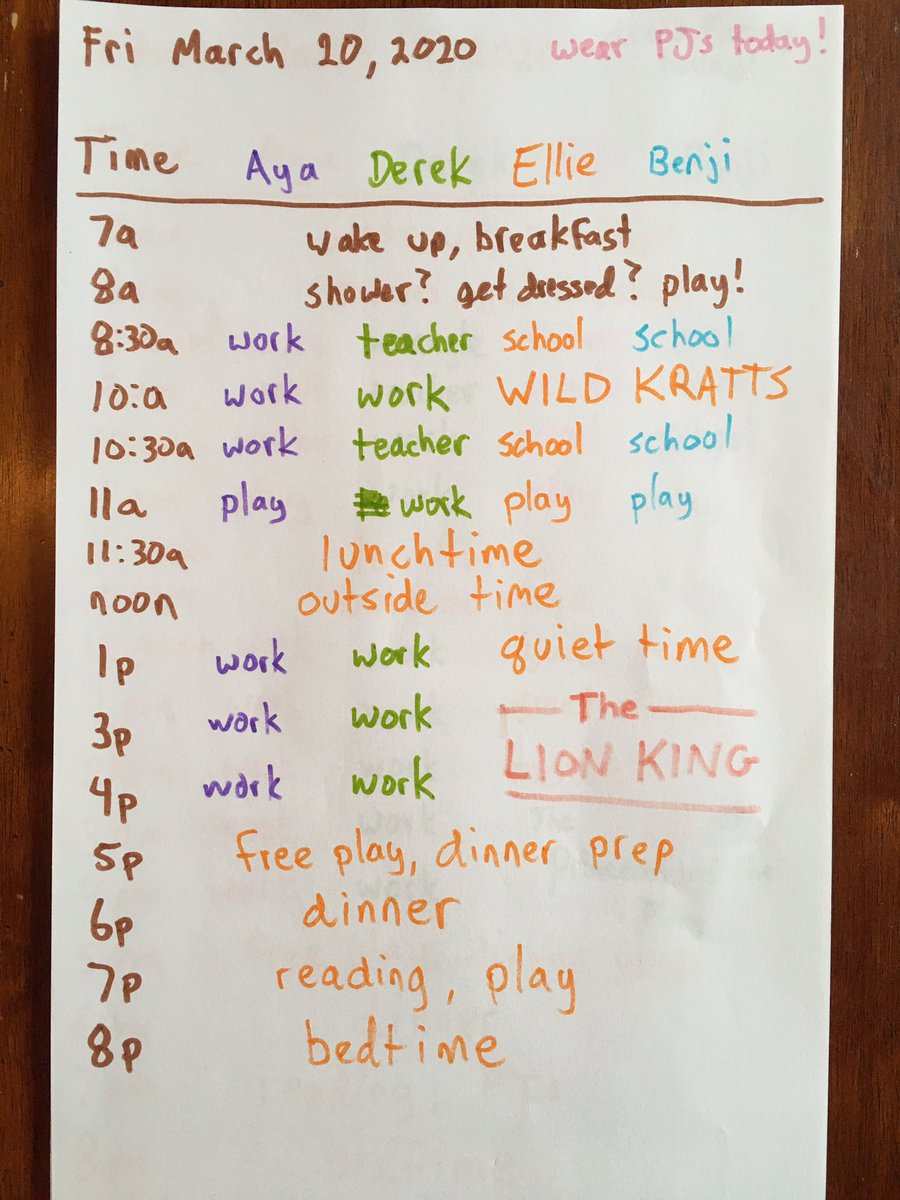 Fri March 20, 2020 wear PJs today!
Time Aya Derek Ellie Benji
7a wake up, breakfast
8a shower? get dressed? play!
8:30a work teacher school school
10:a work work WILD KRATTS
10:30a work teacher school school
11a play work play play
11:30a lunchtime
noon outside time
1p work work quiet time
3p work work The
LION KING
4p work work
5p free play, dinner prep
6p dinner
7p reading, play
8p bedtime